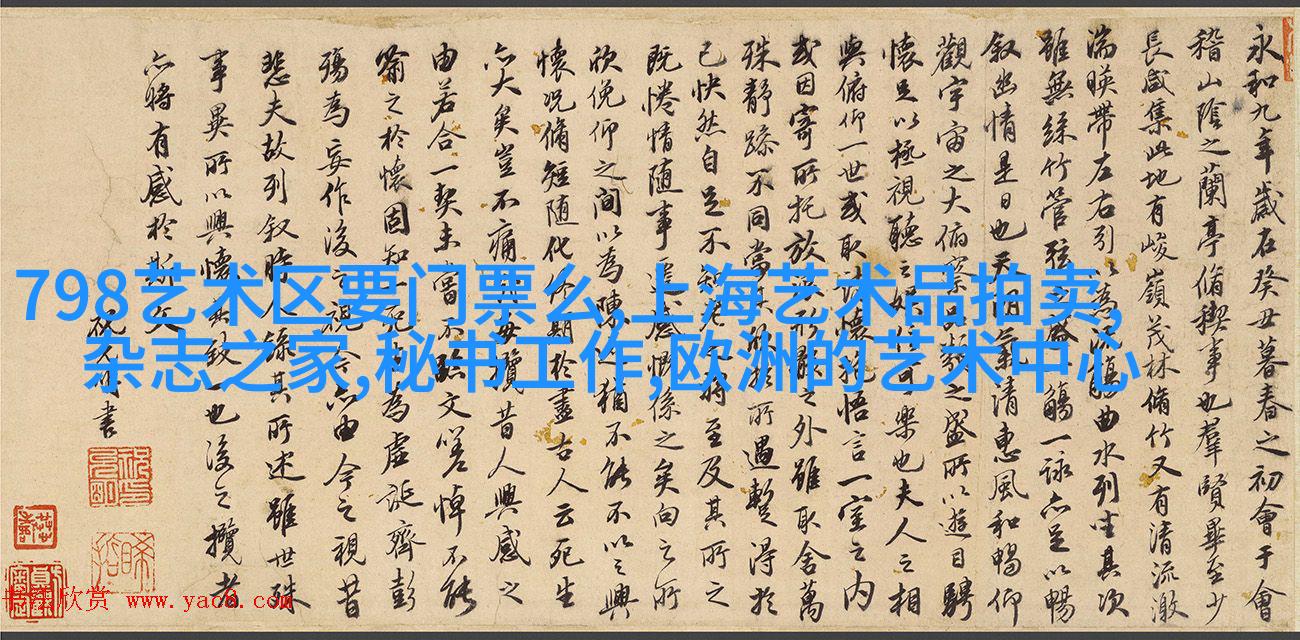 永和九年歲在癸丑暮春之初會于會
稽山陰之蘭亭脩稧事也羣賢畢至少
長咸集此地有峻嶺茂林脩竹又有清流激
湍暎帶左右引以為流觴曲水列坐其次
雖無絲竹管弦之盛一觴一詠亦足以暢
叙幽情是日也天朗氣清惠風和暢仰
觀宇宙之大俯察品類之盛所以遊目騁
懷足以極視聽之娛信可樂也夫人之相
與俯仰一世或取諸懷抱悟言一室之內
或因寄所托放浪形骸之外雖取舍萬
殊靜躁不同當其欣於所遇暫得於
己快然自足不知老之將至及其所之
既惓情随事遷感慨係之矣向之所
欣俛仰之間以為陳迹猶不能不以之興
懷況脩短随化終期於盡古人云死生
亦大矣豈不痛哉每攬昔人興感之
由若合一契未嘗不臨文嗟悼不能
喻之於懷固知一死生為虛誕齊彭
殤為妄作後之視今亦由今之視昔
悲夫故列叙時人錄其所述雖世殊
事異所以興懷其致一也後之攬者
亦將有感於斯文
祝允明書
798艺术区要门票么,上海艺术品拍卖,
杂志之家,秘书工作,欧洲的艺术中心
书法欣赏 www.yac8.com